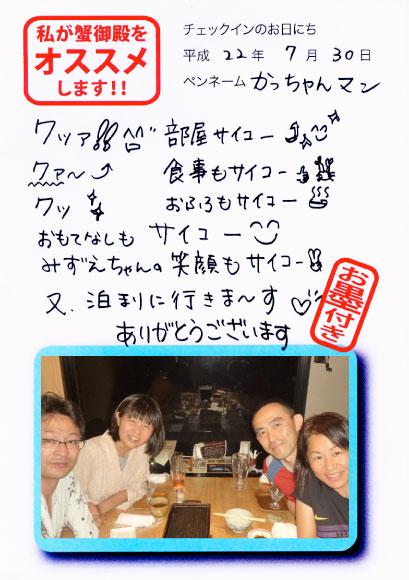 私が蟹御殿を
オススメ
します!!
チェックインのお日にち
平成 22年 7月 30日
ペンネーム かっちゃんマン
クッァ 部屋サイコー
クァ〜 食事もサイコー
クッ おふろもサイコー
おもてなしも サイコー
みずえちゃんの笑顔もサイコー
又、泊まりに行きま〜す
ありがとうございます
お墨付き